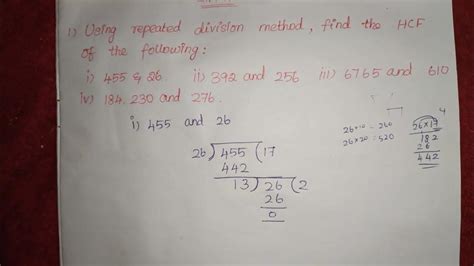 1) Using repeated division method, find the HCF
of the following:
i) 455 & 26 ii) 392 and 256 iii) 6765 and 610
iv) 184, 230 and 276.
i) 455 and 26
26 ) 455 ( 17
442
13 ) 26 ( 2
26
0
26×10 = 260
26×20 = 520
4
26×17
182
26
442